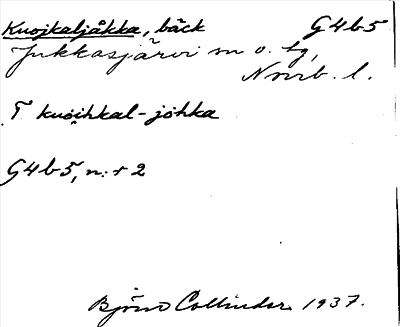 Kuojkaljåkka, bäck G4b5
Jukkasjärvi sn o. tg,
Norrb. l.
T kuoihkal-johka
G4b5, n:r 2
Björn Collinder 1937.